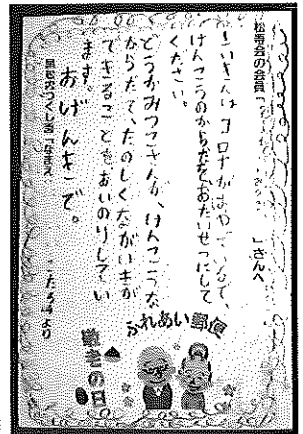 松寿会の会員「 」さんへ
さいきんは コロナがはやっているので、
けんこうのからだをおたいせつにして
ください。
どうかみつこさんが、けんこうな
からだで、たのしくながいきが
できることをおいのりしてい
ます。
おげんきで。
より
ふれあい郵便
敬老の日